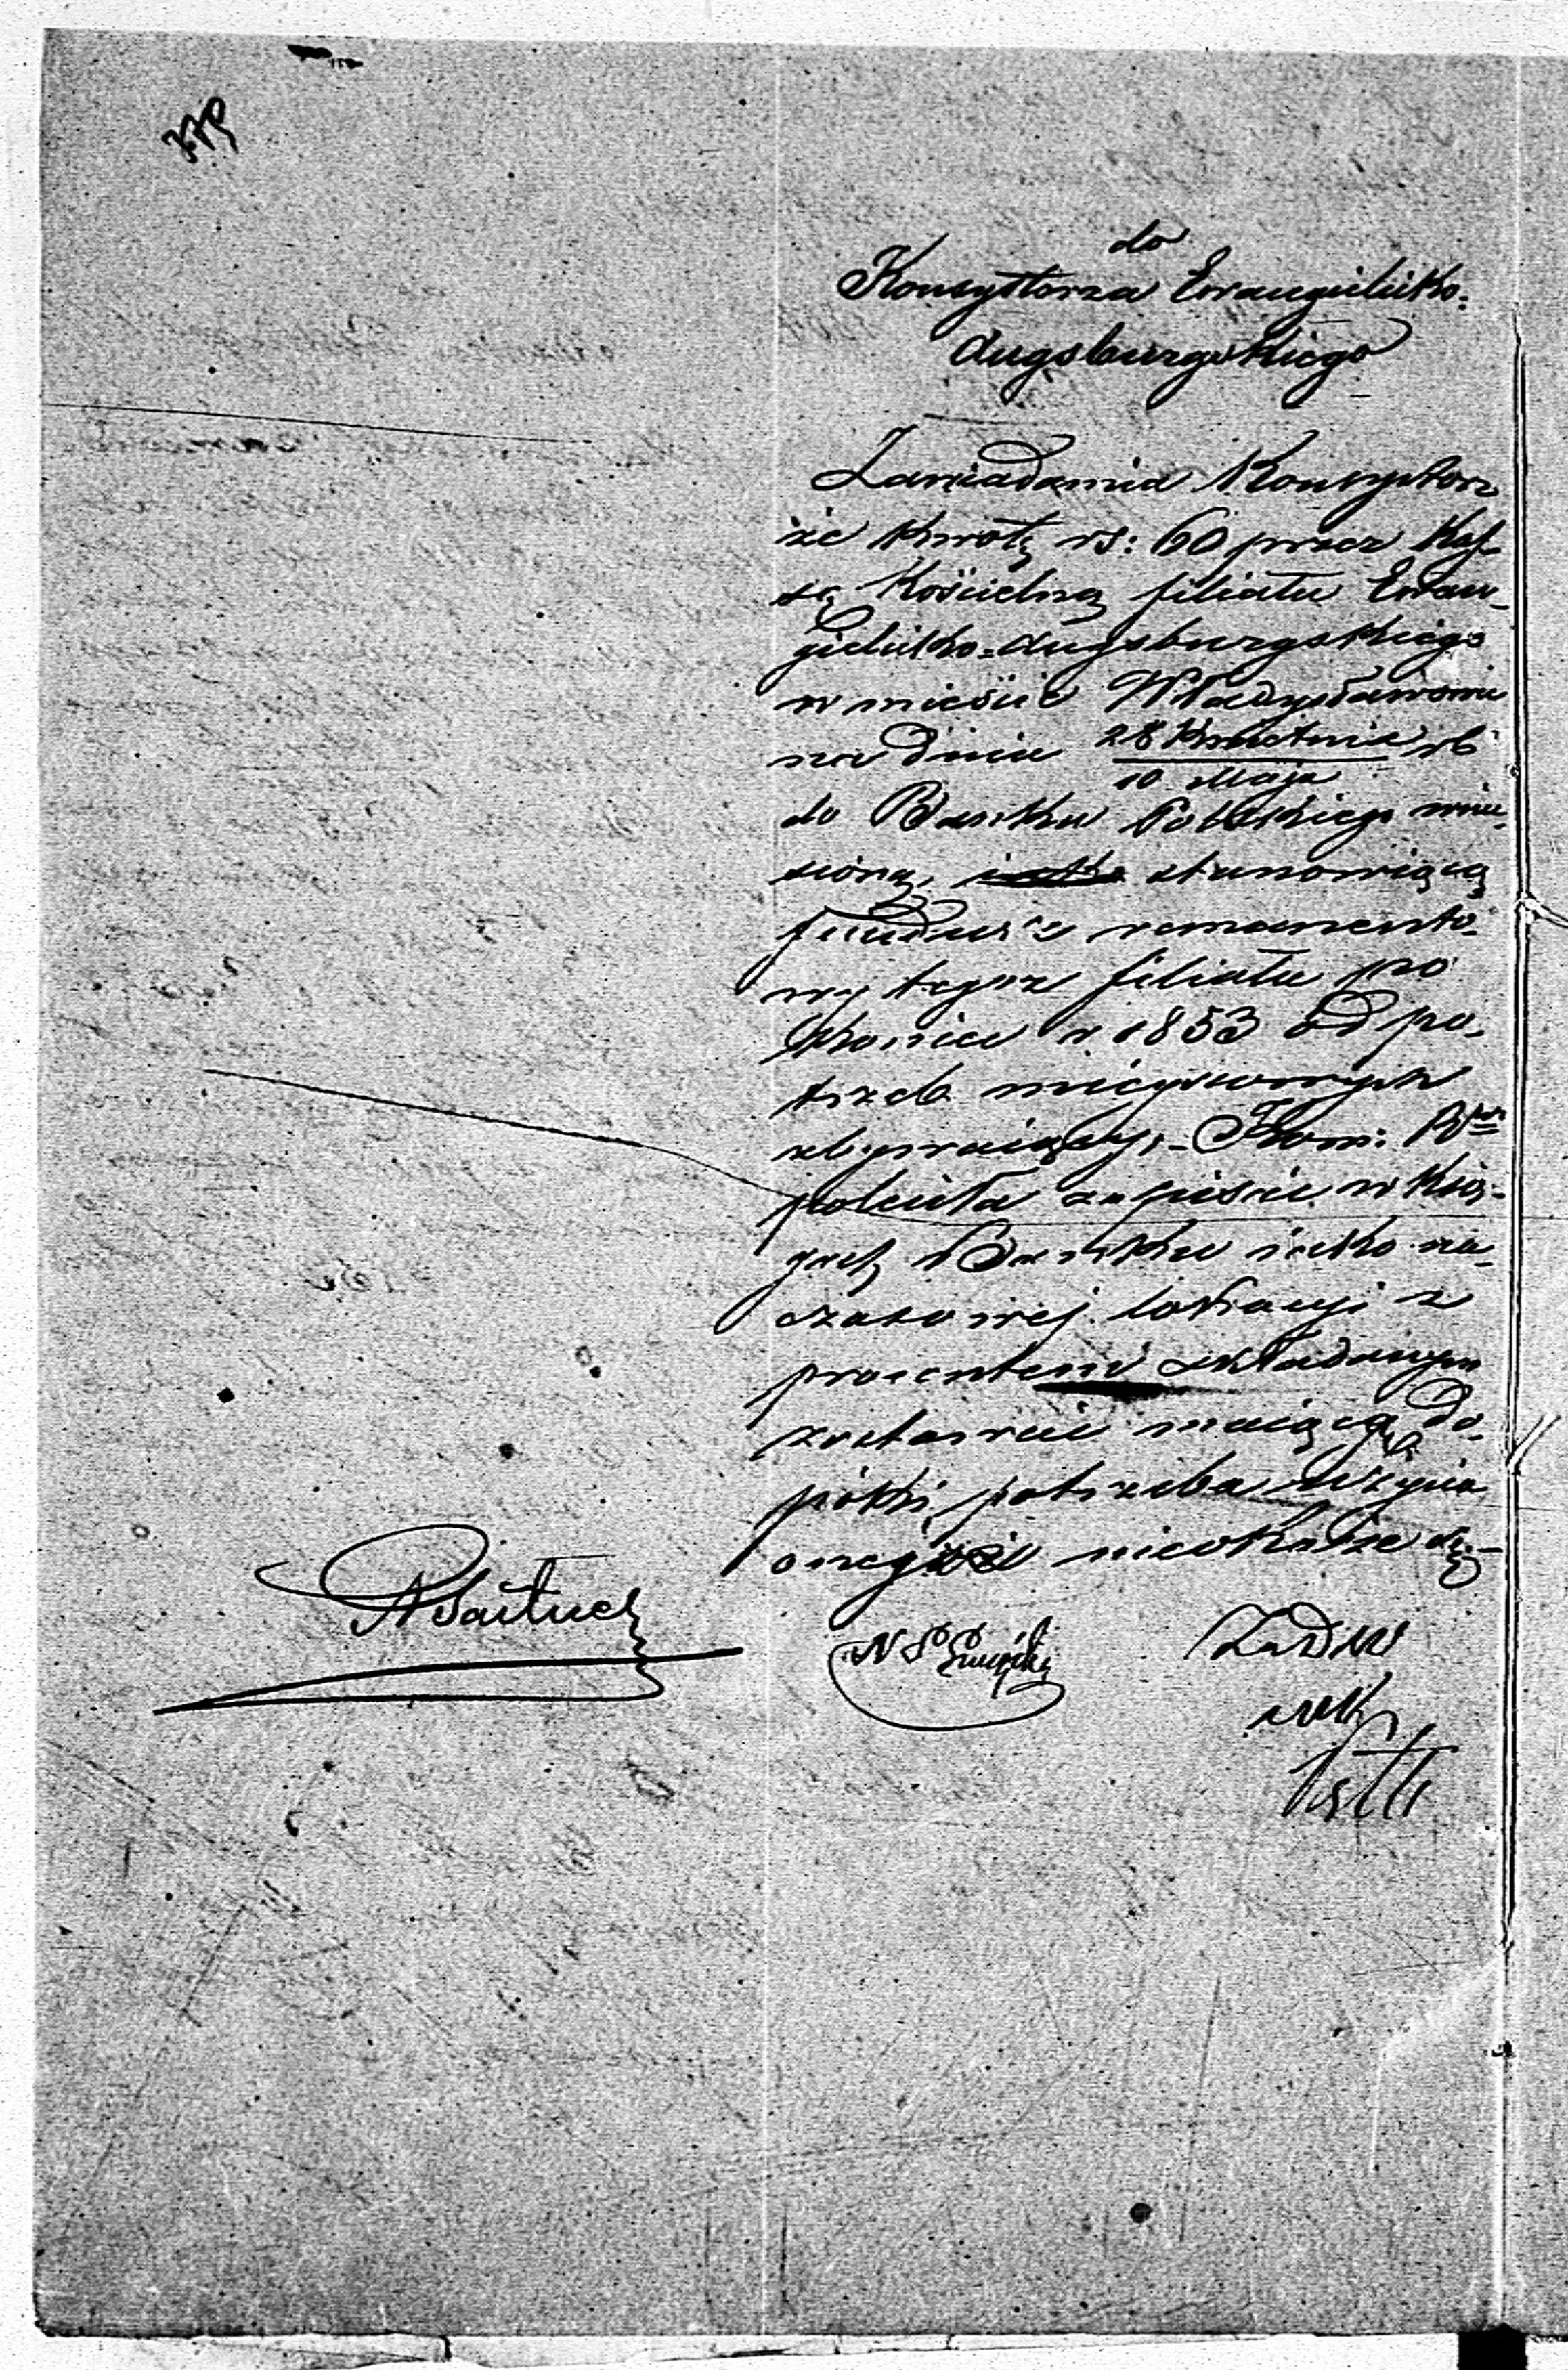 do
Konsystorza Ewangielicko-
Augsburgskiego
Zawiadamia Konsystorz
że kwotę rs: 60 przez Kas-
sę Kościelną filiału Ewan-
gielicko-Augsburgskiego
w mieście Władysławowie
na dniu 28 Kwietnia rb
10 Maja
do Banku Polskiego wnie-
sioną, stanowiącą
fundusz remanento-
wy tegoż filiału po
końcu r 1853 od po-
trzeb miejscowych
zbywaiący,- Kom: Rz
poleciła zapisać w Księ-
gach Banku iako na
czasowej lokacyi z
procentem składanym
zostawać maiącą do-
póki potrzeba użycia
onegoż nieokaże się-